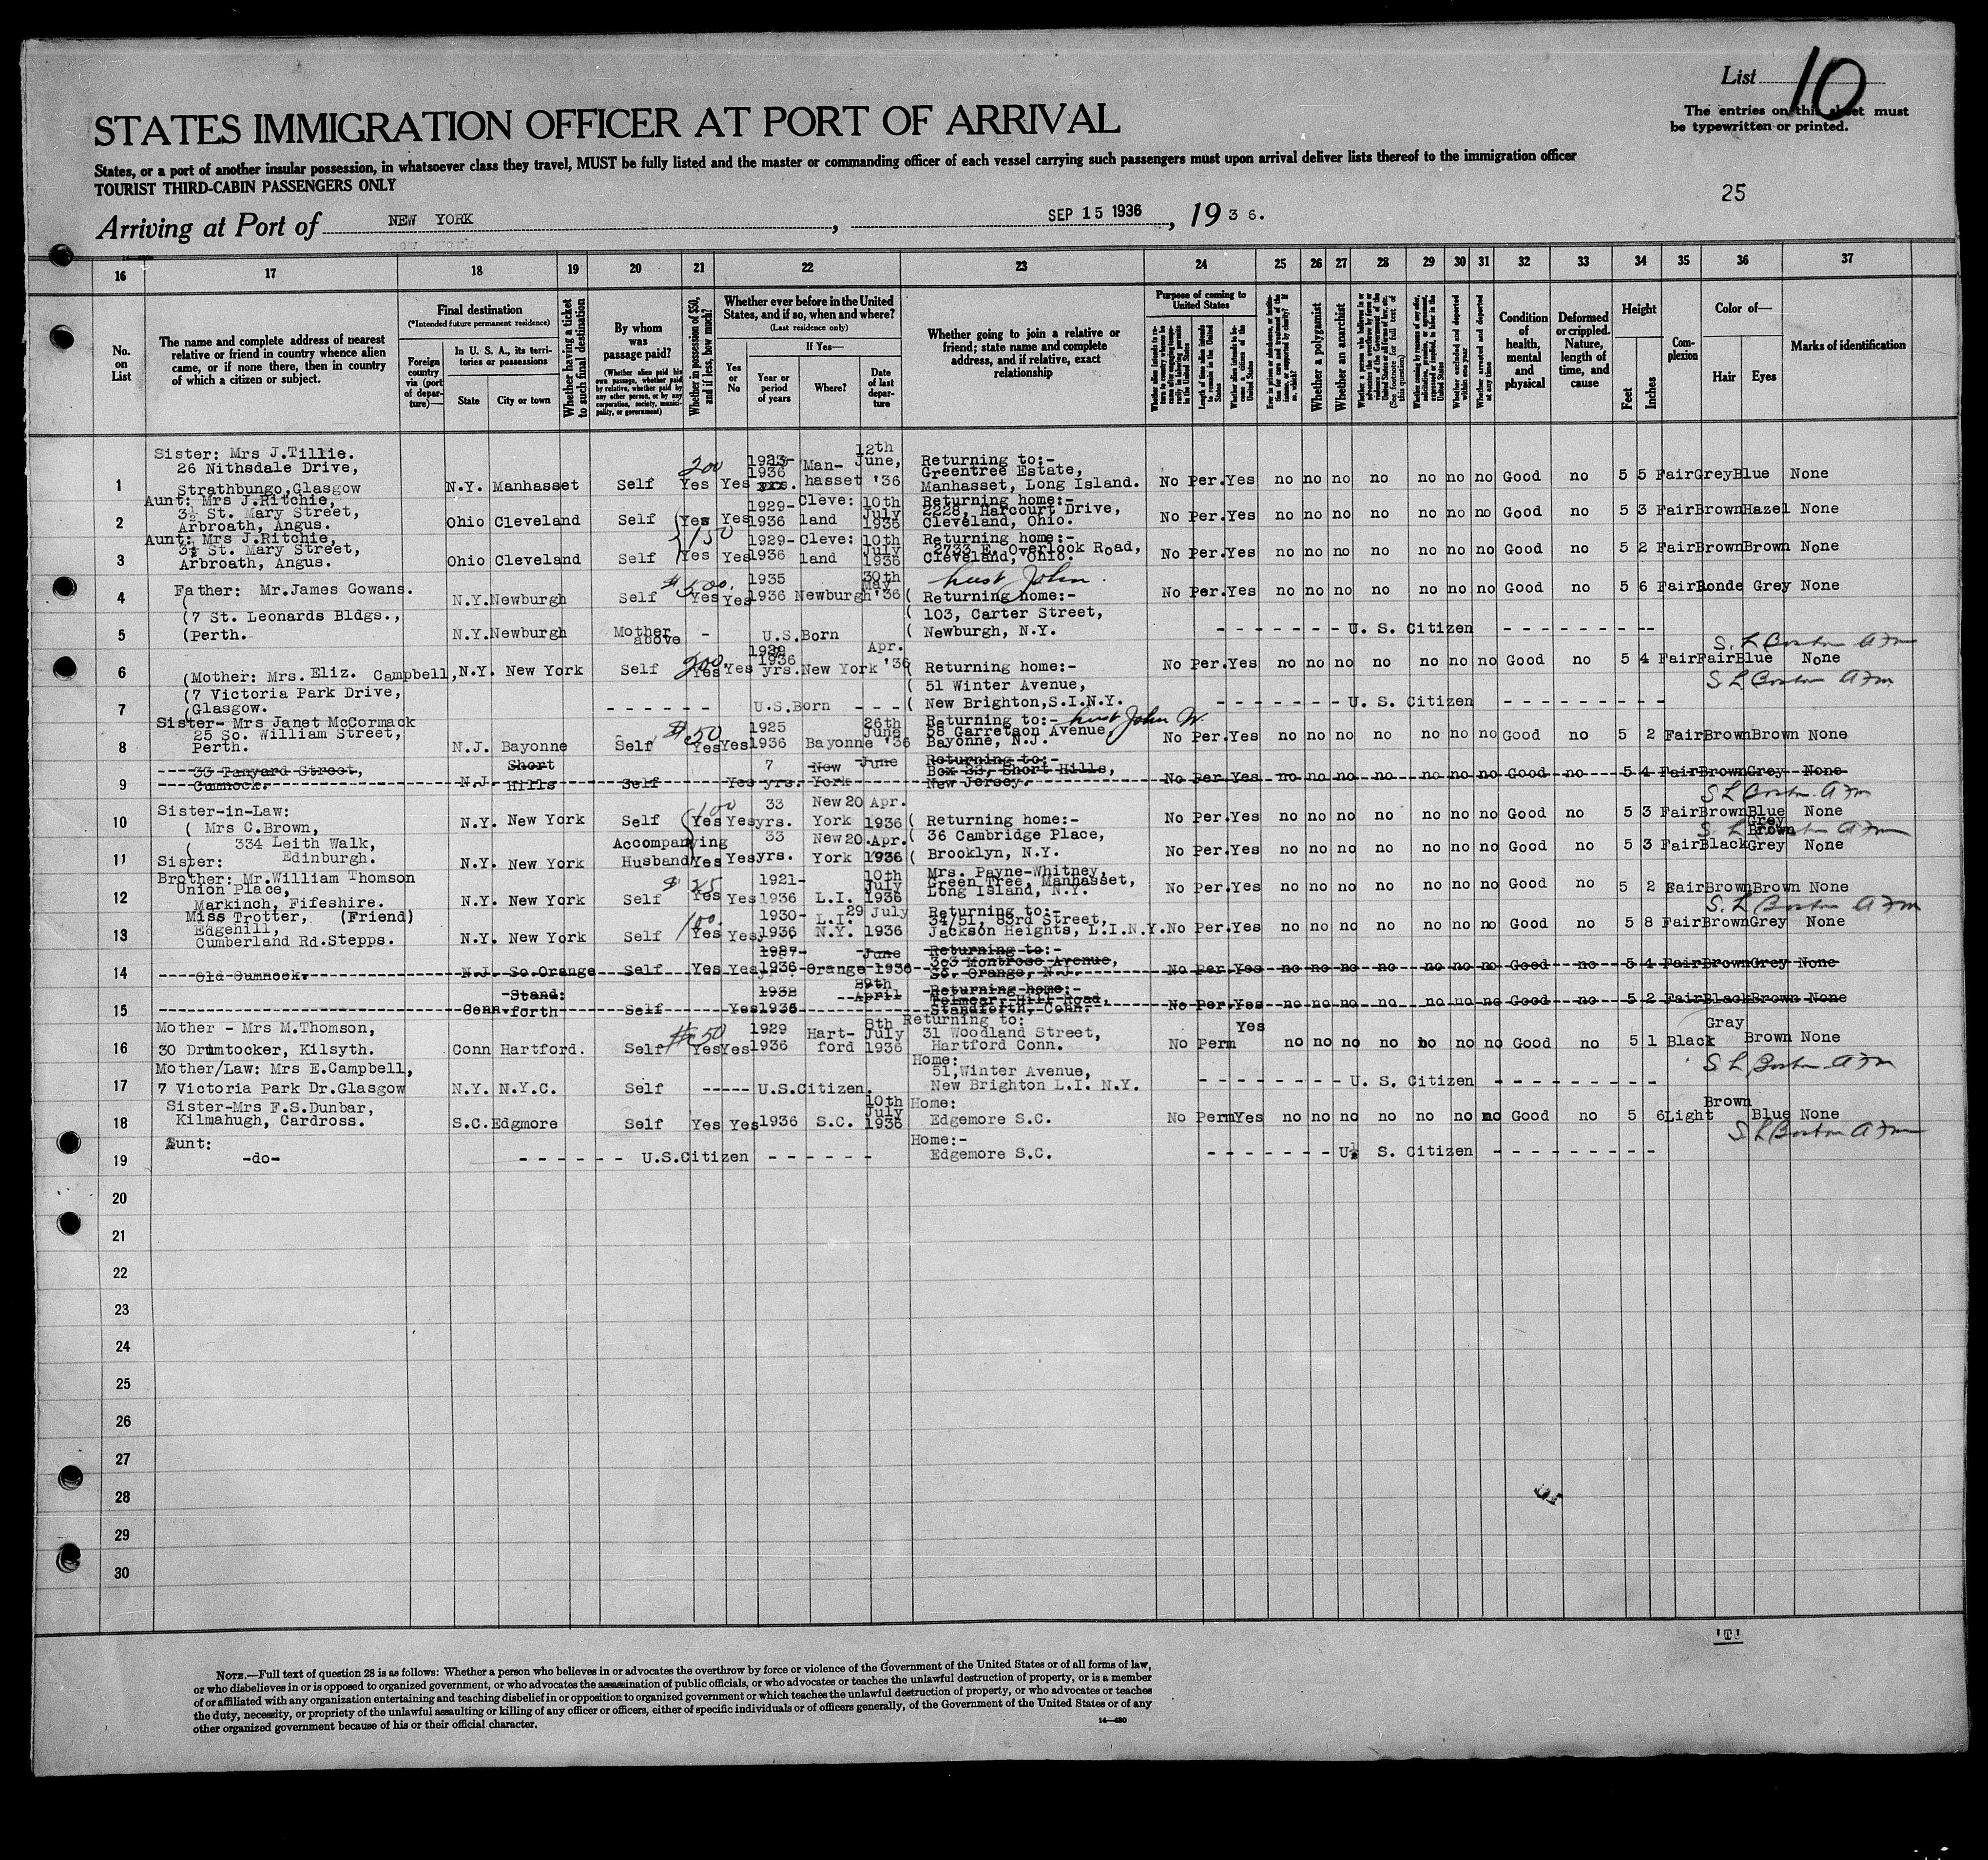 List 10
The entries on this sheet must
be typewritten or printed.
STATES IMMIGRATION OFFICER AT PORT OF ARRIVAL
States, or a port of another insular possession, in whatsoever class they travel, MUST be fully listed and the master or commanding officer of each vessel carrying such passengers must upon arrival deliver lists thereof to the immigration officer
TOURIST THIRD-CABIN PASSENGERS ONLY
25
Arriving at Port of NEW YORK, SEP 15 1936, 19 3 6.
16 17 18 19 20 21 22 23 24 25 26 27 28 29 30 31 32 33 34 35 36 37
No. on List
The name and complete address of nearest relative or friend in country whence alien came, or if none there, then in country of which a citizen or subject.
Final destination
(*Intended future permanent residence)
Foreign country via (port of departure)—
In U. S. A., its territories or possessions
State
City or town
Whether having a ticket to such final destination
By whom was passage paid?
(Whether alien paid his own passage, whether paid by relative, whether paid by any other person, or by any corporation, society, municipality, or government)
Whether in possession of $50, and if less, how much?
Whether ever before in the United States, and if so, when and where?
(Last residence only)
Yes or No
If Yes—
Year or period of years
Where?
Date of last departure
Whether going to join a relative or friend; state name and complete address, and if relative, exact relationship
Purpose of coming to United States
Whether alien intends to return to country whence he came after engaging temporarily in laboring pursuits in the United States
Length of time alien intends to remain in the United States
Whether alien intends to become a citizen of the United States
Whether a polygamist
Whether an anarchist
(See footnote for full text of this question)
Whether excluded and deported within one year
Whether arrested and deported at any time
Condition of health, mental and physical
Deformed or crippled. Nature, length of time, and cause
Height
Feet
Inches
Complexion
Color of—
Hair
Eyes
Marks of identification
1 Sister: Mrs J.Tillie. 26 Nithsdale Drive, Strathbungo,Glasgow N.Y. Manhasset Self 200 Yes Yes 1923- 1936 yrs. Man- hasset 12th June, '36 Returning to:- Greentree Estate, Manhasset, Long Island. No Per. Yes no no no no no no no Good no 5 5 Fair Grey Blue None
2 Aunt: Mrs J.Ritchie, 3½ St. Mary Street, Arbroath, Angus. Ohio Cleveland Self Yes Yes 1929- 1936 Cleve: land 10th July 1936 Returning home:- 2228, Harcourt Drive, Cleveland, Ohio. No Per. Yes no no no no no no no Good no 5 3 Fair Brown Hazel None
3 Aunt: Mrs J.Ritchie, 3½ St. Mary Street, Arbroath, Angus. Ohio Cleveland Self 150 Yes Yes 1929- 1936 Cleve: land 10th July 1936 Returning home:- 2733 E. Overlook Road, Cleveland, Ohio. No Per. Yes no no no no no no no Good no 5 2 Fair Brown Brown None
4 Father: Mr.James Gowans. N.Y. Newburgh Self $500. Yes Yes 1935 1936 Newburgh 30th May '36 husb John. Returning home:- No Per. Yes no no no no no no no Good no 5 6 Fair Bonde Grey None
(7 St. Leonards Bldgs., 103, Carter Street,
5 (Perth. N.Y. Newburgh Mother above - U.S.Born Newburgh, N.Y. - - - U. S. Citizen - - -
S. L Boston A Fm
6 (Mother: Mrs. Eliz. Campbell, N.Y. New York Self 200. Yes Yes 1936 yrs. New York Apr. '36 Returning home:- No Per. Yes no no no no no no no Good no 5 4 Fair Fair Blue None
(7 Victoria Park Drive, 51 Winter Avenue,
S L Boston A Fm
7 (Glasgow. - - - U.S.Born - - - New Brighton,S.I.N.Y. - - - U. S. Citizen - - -
8 Sister- Mrs Janet McCormack 25 So. William Street, Perth. N.J. Bayonne Self $50 Yes Yes 1925 1936 Bayonne 26th June '36 Returning to:- husb John W. 58 Garretson Avenue, Bayonne, N.J. No Per. Yes no no no no no no no Good no 5 2 Fair Brown Brown None
9 33 Tanyard Street, Cumnock. N.J. Short Hills Self Yes 7 yrs. New York June Returning to:- Box 33, Short Hills, New Jersey. No Per Yes no no no no no no no Good no 5 4 Fair Brown Grey None
S L Boston A Fm
10 Sister-in-Law: ( Mrs C.Brown, N.Y. New York Self 100 Yes Yes 33 yrs. New York 20 Apr. 1936 Returning home:- No Per. Yes no no no no no no no Good no 5 3 Fair Brown Blue Grey None
( 334 Leith Walk, 36 Cambridge Place,
S. L Boston A Fm
11 Sister: Edinburgh. N.Y. New York Accompanying Husband Yes Yes 33 yrs. New York 20 Apr. 1936 Brooklyn, N.Y. No Per. Yes no no no no no no no Good no 5 3 Fair Black Brown Grey None
12 Brother: Mr.William Thomson Union Place, Markinch, Fifeshire. N.Y. New York Self $25 Yes Yes 1921- 1936 L.I. 10th July 1936 Mrs. Payne-Whitney, Green Tree, Manhasset, Long Island, N.Y. No Per. Yes no no no no no no no Good no 5 2 Fair Brown Brown None
S. L Boston A Fm
13 Miss Trotter, (Friend) Edgehill, Cumberland Rd.Stepps. N.Y. New York Self 100. Yes Yes 1930- 1936 L.I. N.Y. 29 July 1936 Returning to:- 34/51, 83rd Street, Jackson Heights, L.I.N.Y. No Per. Yes no no no no no no no Good no 5 8 Fair Brown Grey None
14 Old Cumnock. N.J. So.Orange Self Yes Yes 1927- 1936 Orange June 1936 Returning to:- 303 Montrose Avenue, So. Orange, N.J. No Per Yes no no no no no no no Good no 5 4 Fair Brown Grey None
15 Conn. Stand: forth Self Yes 1932 1936 29th April Returning home:- Hill Road, Standforth, Conn. No Per. Yes no no no no no no no Good no 5 2 Fair Black Brown None
16 Mother - Mrs M.Thomson, 30 Drumtocker, Kilsyth. Conn Hartford. Self $50 Yes Yes 1929 1936 Hart- ford 8th July 1936 Returning to: 31 Woodland Street, Hartford Conn. No Perm Yes no no no no no no no Good no 5 1 Black Gray Brown None
S L Boston A Fm
17 Mother/Law: Mrs E.Campbell, 7 Victoria Park Dr.Glasgow N.Y. N.Y.C. Self ----- U.S.Citizen. Home: 51,Winter Avenue, New Brighton L.I. N.Y. - - - U. S. Citizen - - -
18 Sister-Mrs F.S.Dunbar, Kilmahugh, Cardross. S.C. Edgmore Self Yes Yes 1936 S.C. 10th July 1936 Home: Edgemore S.C. No Perm Yes no no no no no no no Good no 5 6 Light Brown Blue None
S. L Boston A Fm
19 Aunt: -do- - - - U.S.Citizen - - - Home:- Edgemore S.C. - - - U. S. Citizen - - -
20
21
22
23
24
25
26
27
28
29
30
NOTE.—Full text of question 28 is as follows: Whether a person who believes in or advocates the overthrow by force or violence of the Government of the United States or of all forms of law,
or who disbelieves in or is opposed to organized government, or who advocates the assassination of public officials, or who advocates or teaches the unlawful destruction of property, or is a member
of or affiliated with any organization entertaining and teaching disbelief in or opposition to organized government or which teaches the unlawful destruction of property, or who advocates or teaches
the duty, necessity, or propriety of the unlawful assaulting or killing of any officer or officers, either of specific individuals or of officers generally, of the Government of the United States or of any
other organized government because of his or their official character.
14—430